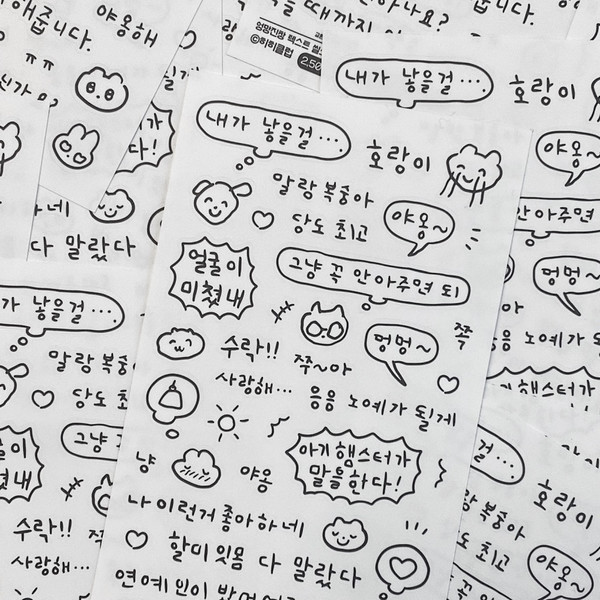 해줍니다.
야옹해
ㅠㅠ
엉망진창 텍스트 씰
©히히클럽
2.50
내가 낳을걸···.
호랑이
야옹~
멍멍~
내가 낳을걸···.
호랑이
말랑 복숭아
당도 최고
야옹~
얼굴이
미쳤내
그냥 꼭 안아주면 되
수락!!
쭈~아
멍멍~
쪽
사랑해···
응응 노예가 될게
냥
야옹
아기 햄스터가
말을한다!
나 이런거 좋아하네
할미 잇몸 다 말랐다
연예인이
다 말랐다
가 낳을걸···.
말랑 복숭아
당도 초
그냥
수락!!
사랑해···
안아주면
노예가 되
햄스터가
호랑이
당도 최고
야옹~